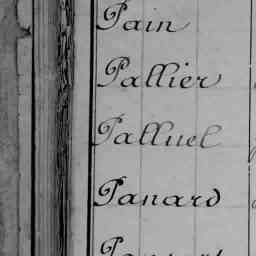 Pain
Pallier
Palluel
Panard